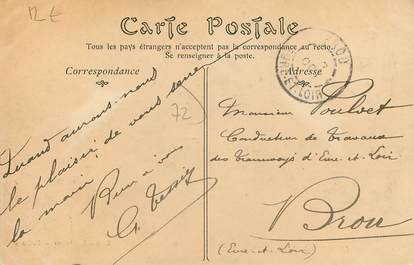 12 €
Carte Postale
Tous les pays étrangers n'acceptent pas la correspondance au recto.
Se renseigner à la poste.
Correspondance
Adresse
ET-LOIR
72
Quand aurons-nous
le plaisir de vous serrer
la main
Bien à vous
G.
Monsieur Poulvet
Conducteur de Travaux
des Tramways d'Eure et Loir
Brou
(Eure-et-Loir)